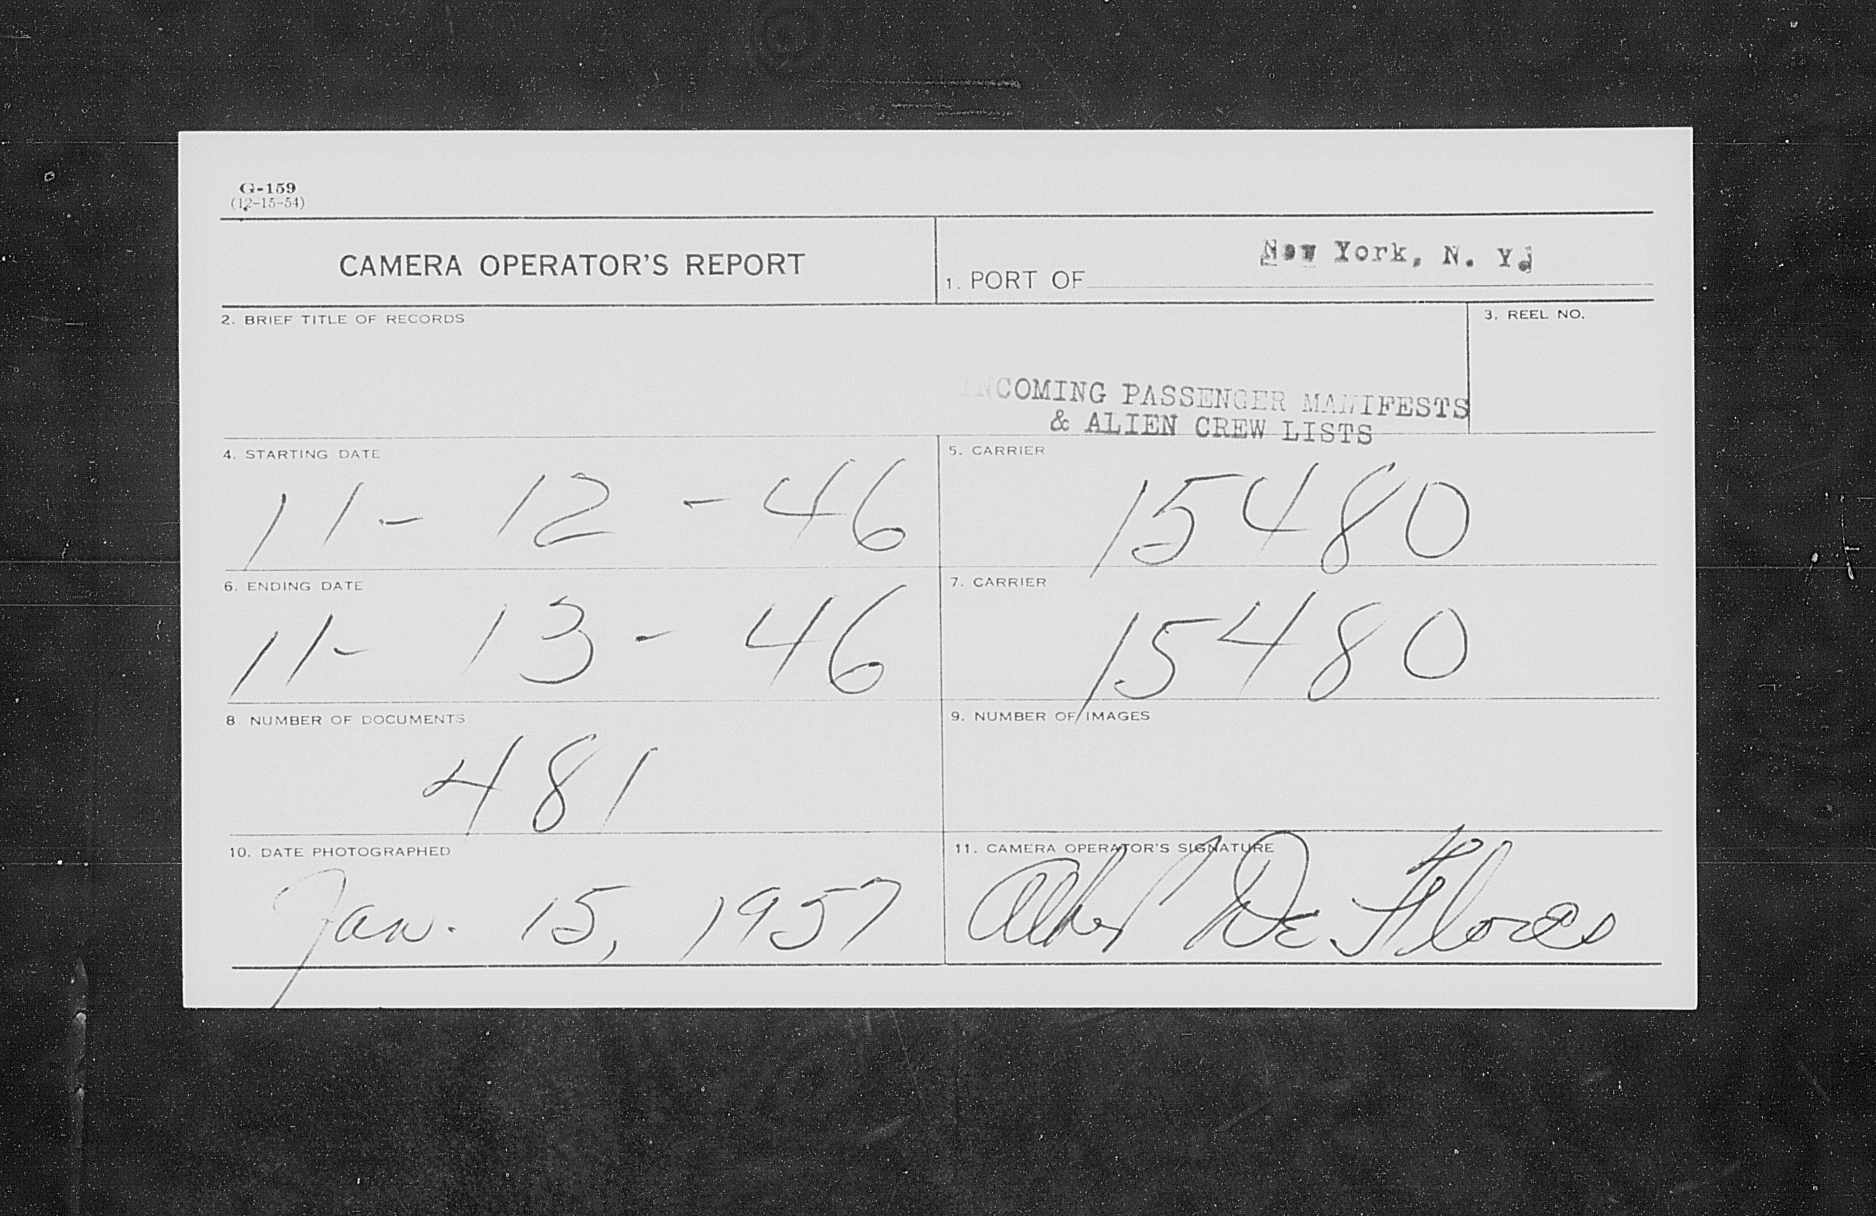 G-159
(12-15-54)
CAMERA OPERATOR'S REPORT
1. PORT OF New York, N. Y.
2. BRIEF TITLE OF RECORDS
3. REEL NO.
INCOMING PASSENGER MANIFESTS
& ALIEN CREW LISTS
4. STARTING DATE
11-12-46
5. CARRIER
15480
6. ENDING DATE
11-13-46
7. CARRIER
15480
8 NUMBER OF DOCUMENTS
481
9. NUMBER OF IMAGES
10. DATE PHOTOGRAPHED
Jan. 15, 1957
11. CAMERA OPERATOR'S SIGNATURE
De Flores